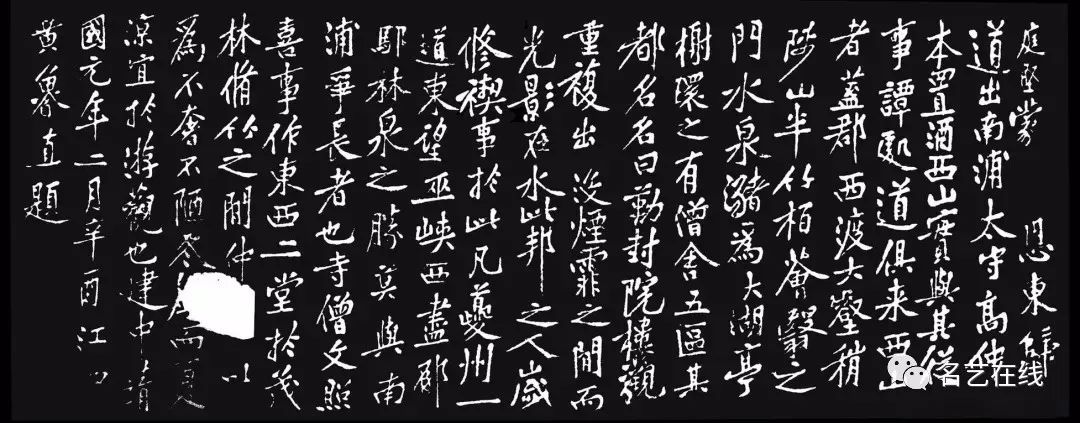 庭堅蒙 恩東歸
道出南浦太守高仲
本置酒西山實與其從
事譚處道俱来西山
者蓋郡西渡大壑稍
陟山半竹栢薈翳之
門水泉瀦爲大湖亭
榭環之有僧舍五區其
都名名曰勒封院樓觀
重複出没煙霏之間而
光影在水此邦之人歲
修禊事於此凡夔州一
道東望巫峽西盡郁
鄢林泉之勝莫與南
浦爭長者也寺僧文照
喜事作東西二堂於茂
林脩竹之間仲 以
爲不奢不陋冬 而夏
凉宜於游觀也建中靖
國元年二月辛酉江西
黄魯直題
名艺在线